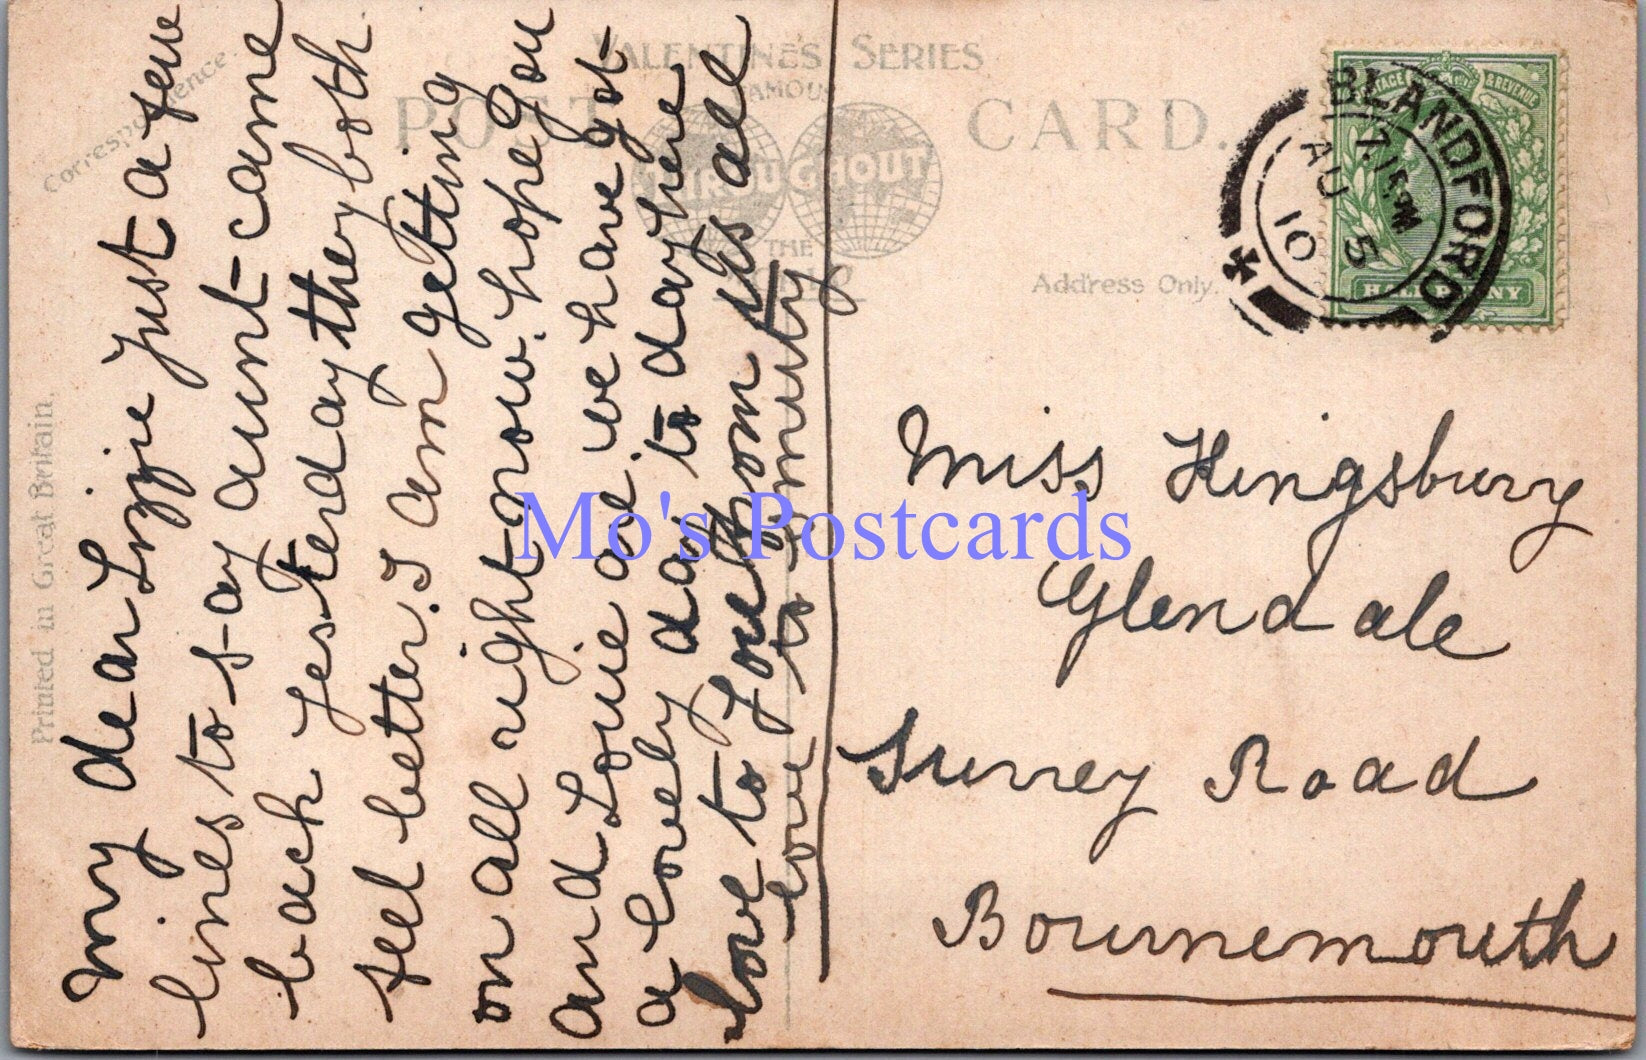 Correspondence.
VALENTINE'S SERIES
FAMOUS
POST CARD.
THROUGHOUT
THE
WORLD
Address Only.
Printed in Great Britain.
BLANDFORD
7.15PM
AU 5
10
POSTAGE & REVENUE
HALFPENNY
My dear Lizzie Just a few
lines to say aunt came
back yesterday they both
feel better. I am getting
on all right now. hope you
and Louie are. we have got
a lovely day to day here
love to you from us all
love to Smuty
Miss Kingsbury
Glendale
Surrey Road
Bournemouth
Mo's Postcards